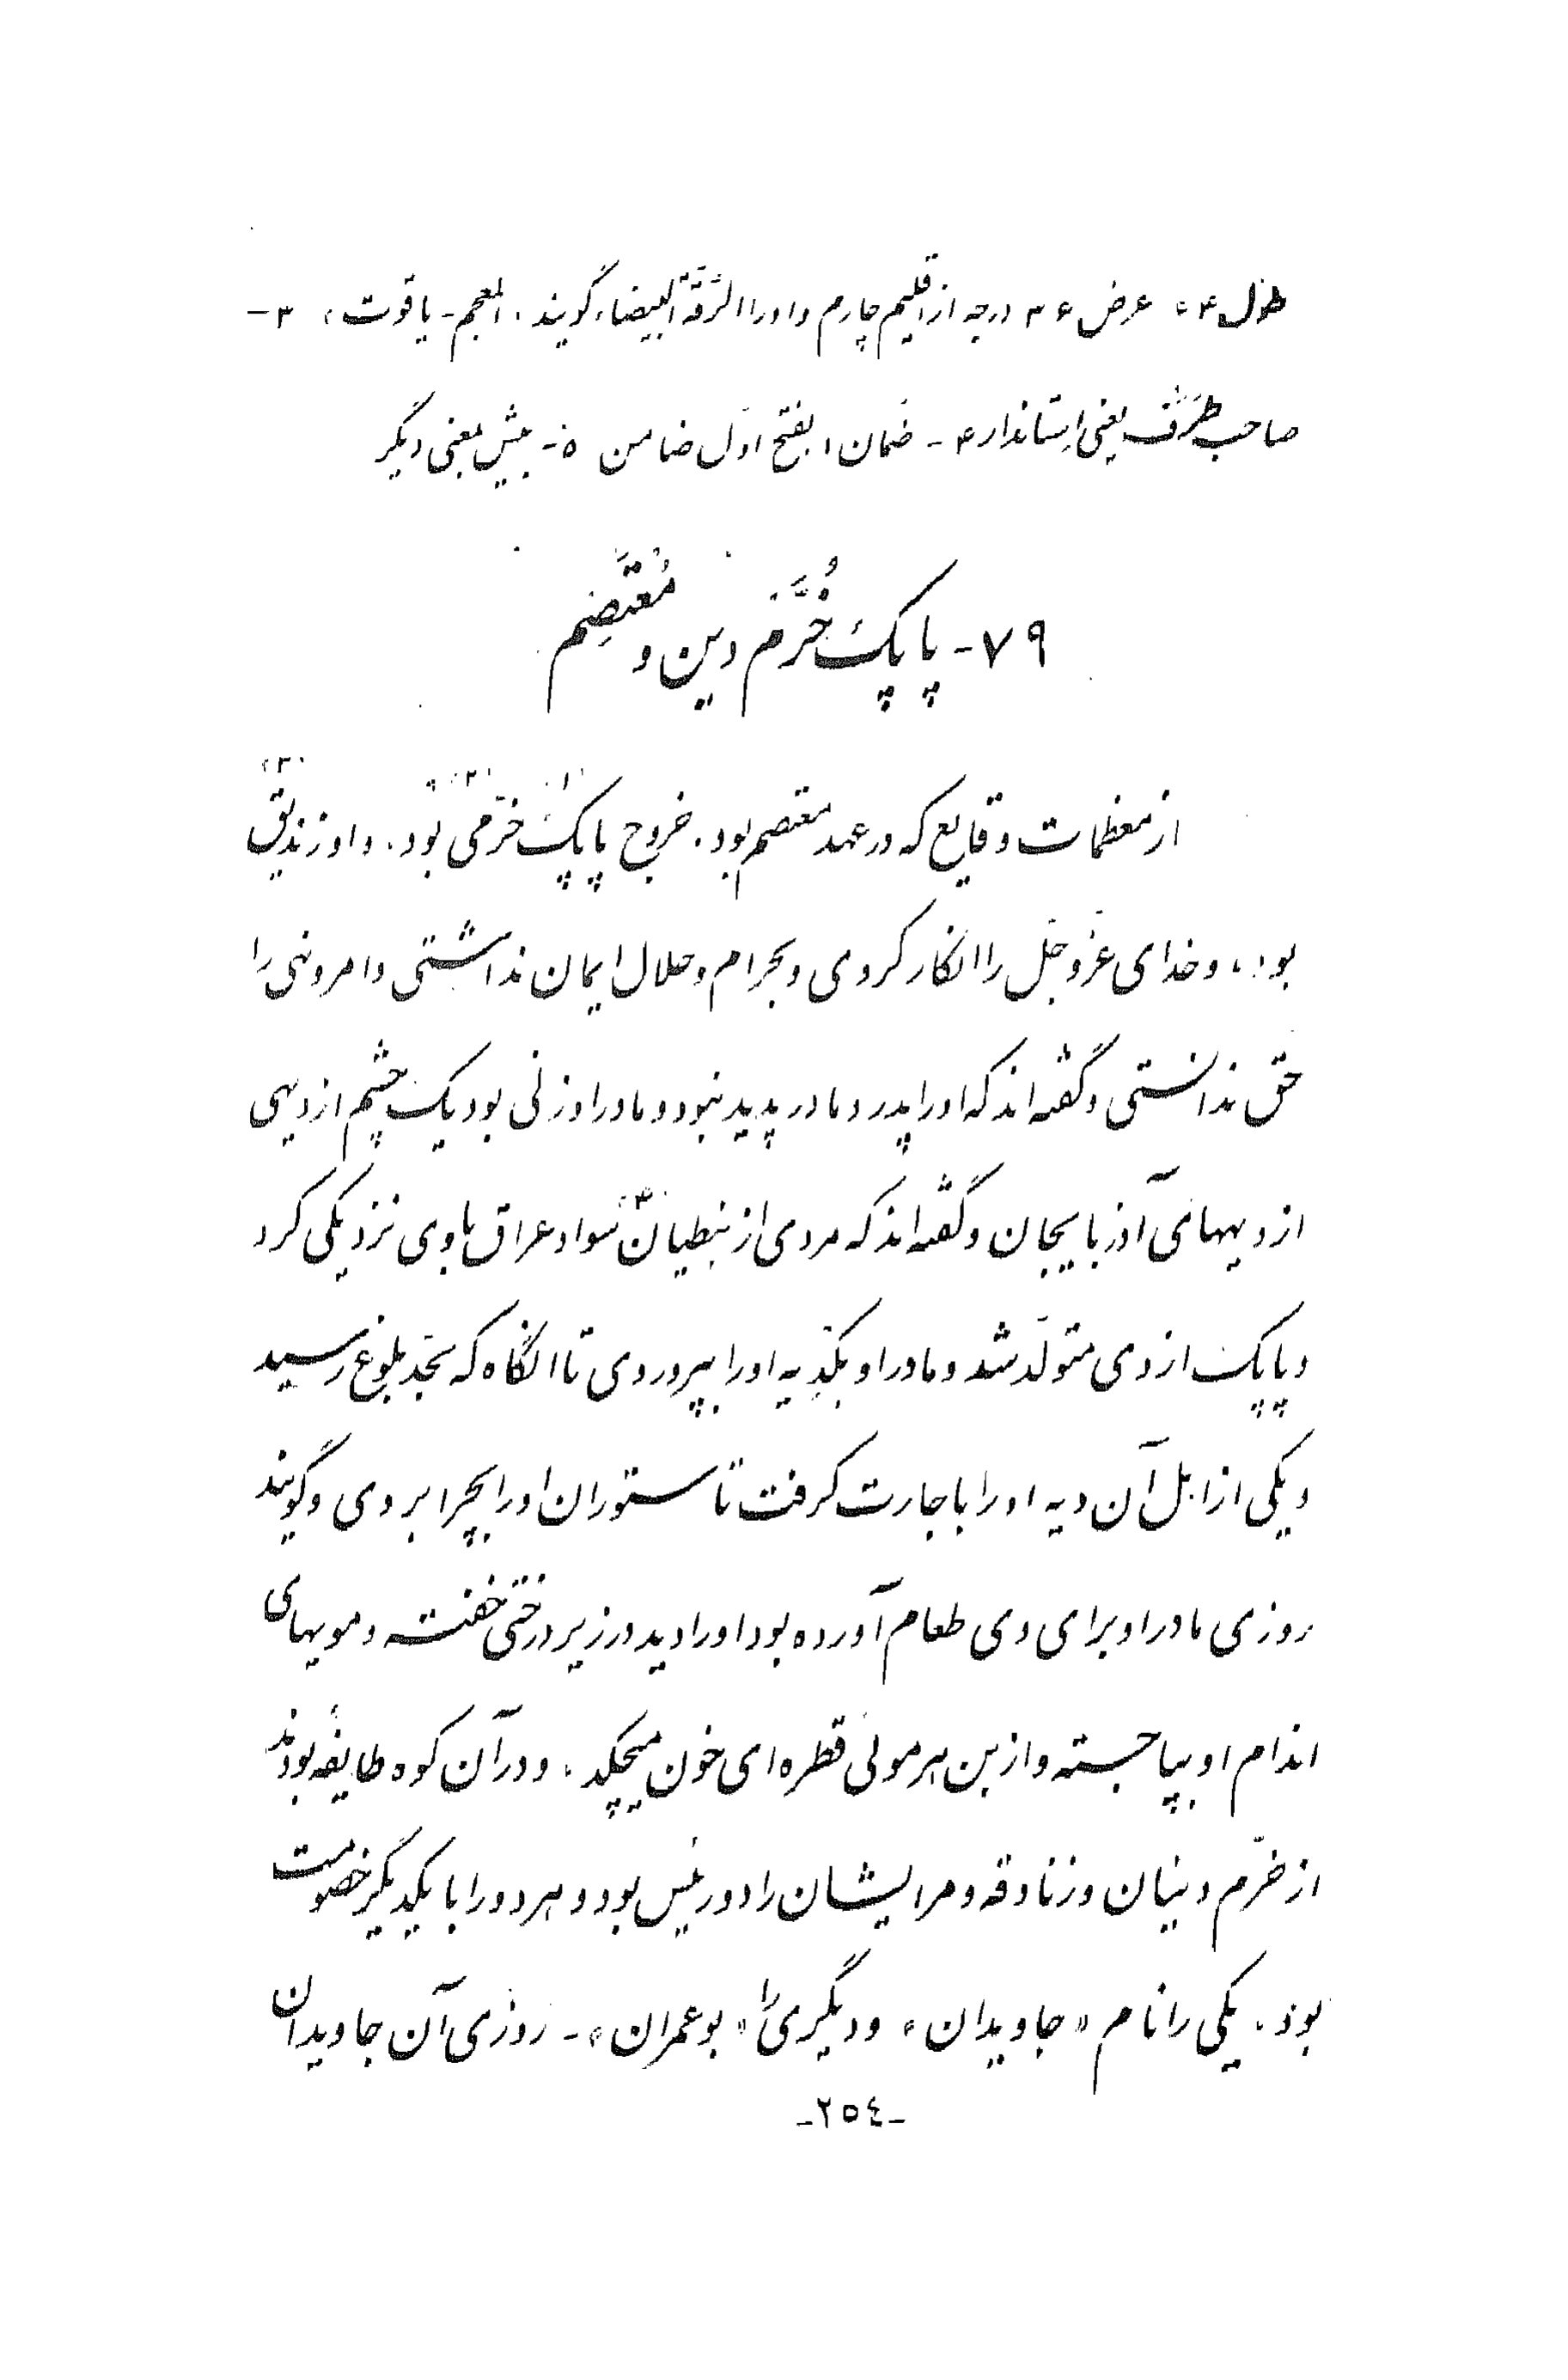 طول ۶۴ عرض ۳۶ درجه از اقلیم چارم و اورا الرَّقَّة البیضاء گویند. المعجم - یاقوت، ۳-
صاحب طَرَف یعنی اِستاندار ۴- ضَمان، بفتح اوّل ضامن ۵- بیش بمعنی دیگر
۷۹- پاپک خُرَّم دین و مُعتَصِم
از معظمات وقایع که در عهد معتصم بود. خروج پاپک (۱) خرّمی (۲) بود. و او زندیق (۳)
بود، و خدای عَزّوجَل را انکار کردی و بحرام و حلال ایمان نداشتی و امر و نهی را
حق ندانستی و گفته‌اند که اورا پدر و مادر پدید نبود و مادر او زنی بود یک چشم از دیهی
از دیهای آذربایجان و گفته‌اند که مردی از نبطیان (۴) سواد عراق باوی نزدیکی کرد
و پاپک از وی متولّد شد و مادر او بکَدیه اورا بپروردی تا آنگاه که بحّد بلوغ رسید
و یکی از اهل آن دیه اورا باجارت گرفت تا ستوران اورا بچرا بردی و گویند
روزی مادر او برای وی طعام آورده بود اورا دید در زیر درختی خفته و مویهای
اندام او بپا جسته و از بن هر موئی قطره‌ای خون میچکید، و در آن کوه طایفه بودند
از خرّم دینان و زنادقه و مر ایشان را دو رئیس بود و هر دو را با یکدیگر خصومت
بود. یکی را نام «جاویدان» و دیگری را «بوعمران»- روزی آن جاویدان
-۲۵٤-